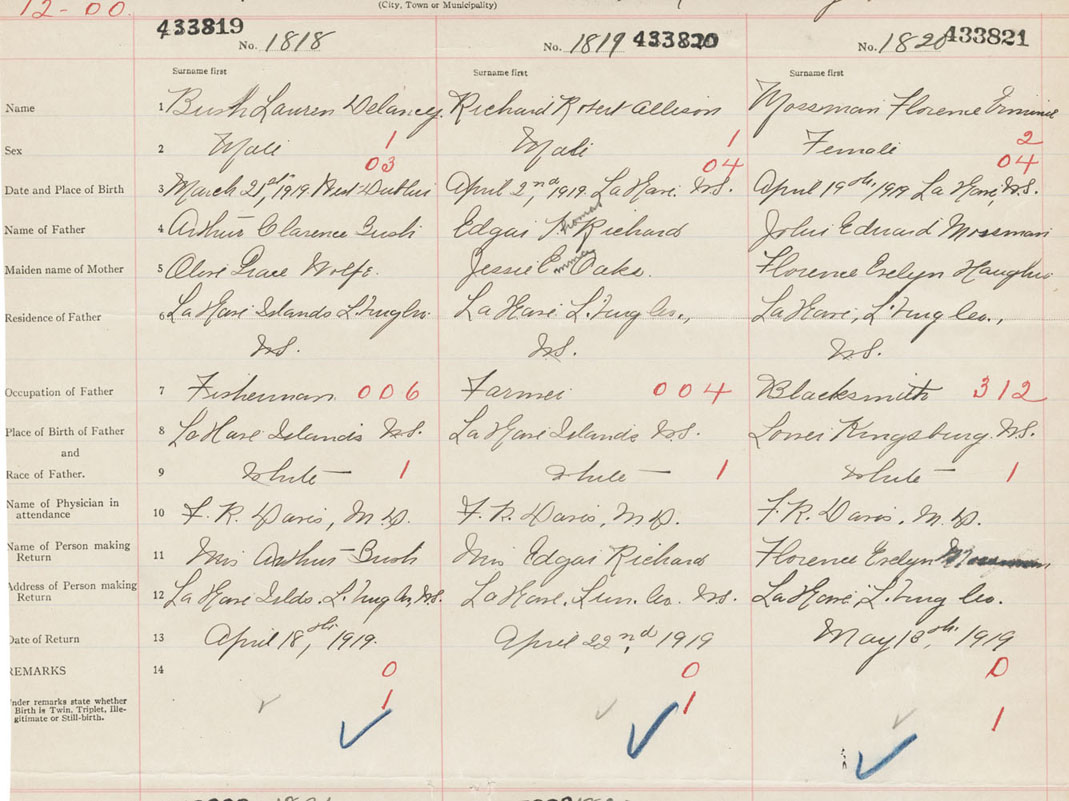 12-00.
(City, Town or Municipality)
433819 433820 433821
No. 1818 No. 1819 No. 1820
Surname first Surname first Surname first
Name 1 Bush Lauren Delancey. Richard Robert Allison Mossman Florence Erminie
Sex 2 Male 1 Male 1 Female 2
03 04 04
Date and Place of Birth 3 March 21st, 1919, West Dublin April 2nd, 1919. La Have. N.S. April 19th, 1919 La Have, N.S.
Name of Father 4 Arthur Clarence Bush Edgar Thomas Richard John Edward Mossman
Maiden name of Mother 5 Olive Grace Wolfe. Jessie Emma Oake. Florence Evelyn
Residence of Father 6 La Have Islands L'burg Co. La Have. L'burg Co., La Have, L'burg Co.,
N.S. N.S. N.S.
Occupation of Father 7 Fisherman 006 Farmer 004 Blacksmith 312
Place of Birth of Father 8 La Have Islands N.S. La Have Islands N.S. Lower Kingsburg. N.S.
and
Race of Father. 9 White 1 White 1 White 1
Name of Physician in
attendance 10 F. R. Davis, M.D. F. R. Davis, M.D. F. R. Davis, M.D.
Name of Person making
Return 11 Mrs Arthur Bush Mrs Edgar Richard Florence Evelyn Mossman
Address of Person making
Return 12 La Have Islds. L'burg Co, N.S. La Have, Lun. Co. N.S. La Have, L'burg Co.
Date of Return 13 April 18th, 1919. April 22nd, 1919 May 18th, 1919
REMARKS 14 0 0 0
Under remarks state whether
Birth is Twin, Triplet, Ille-
gitimate or Still-birth.
1 1 1